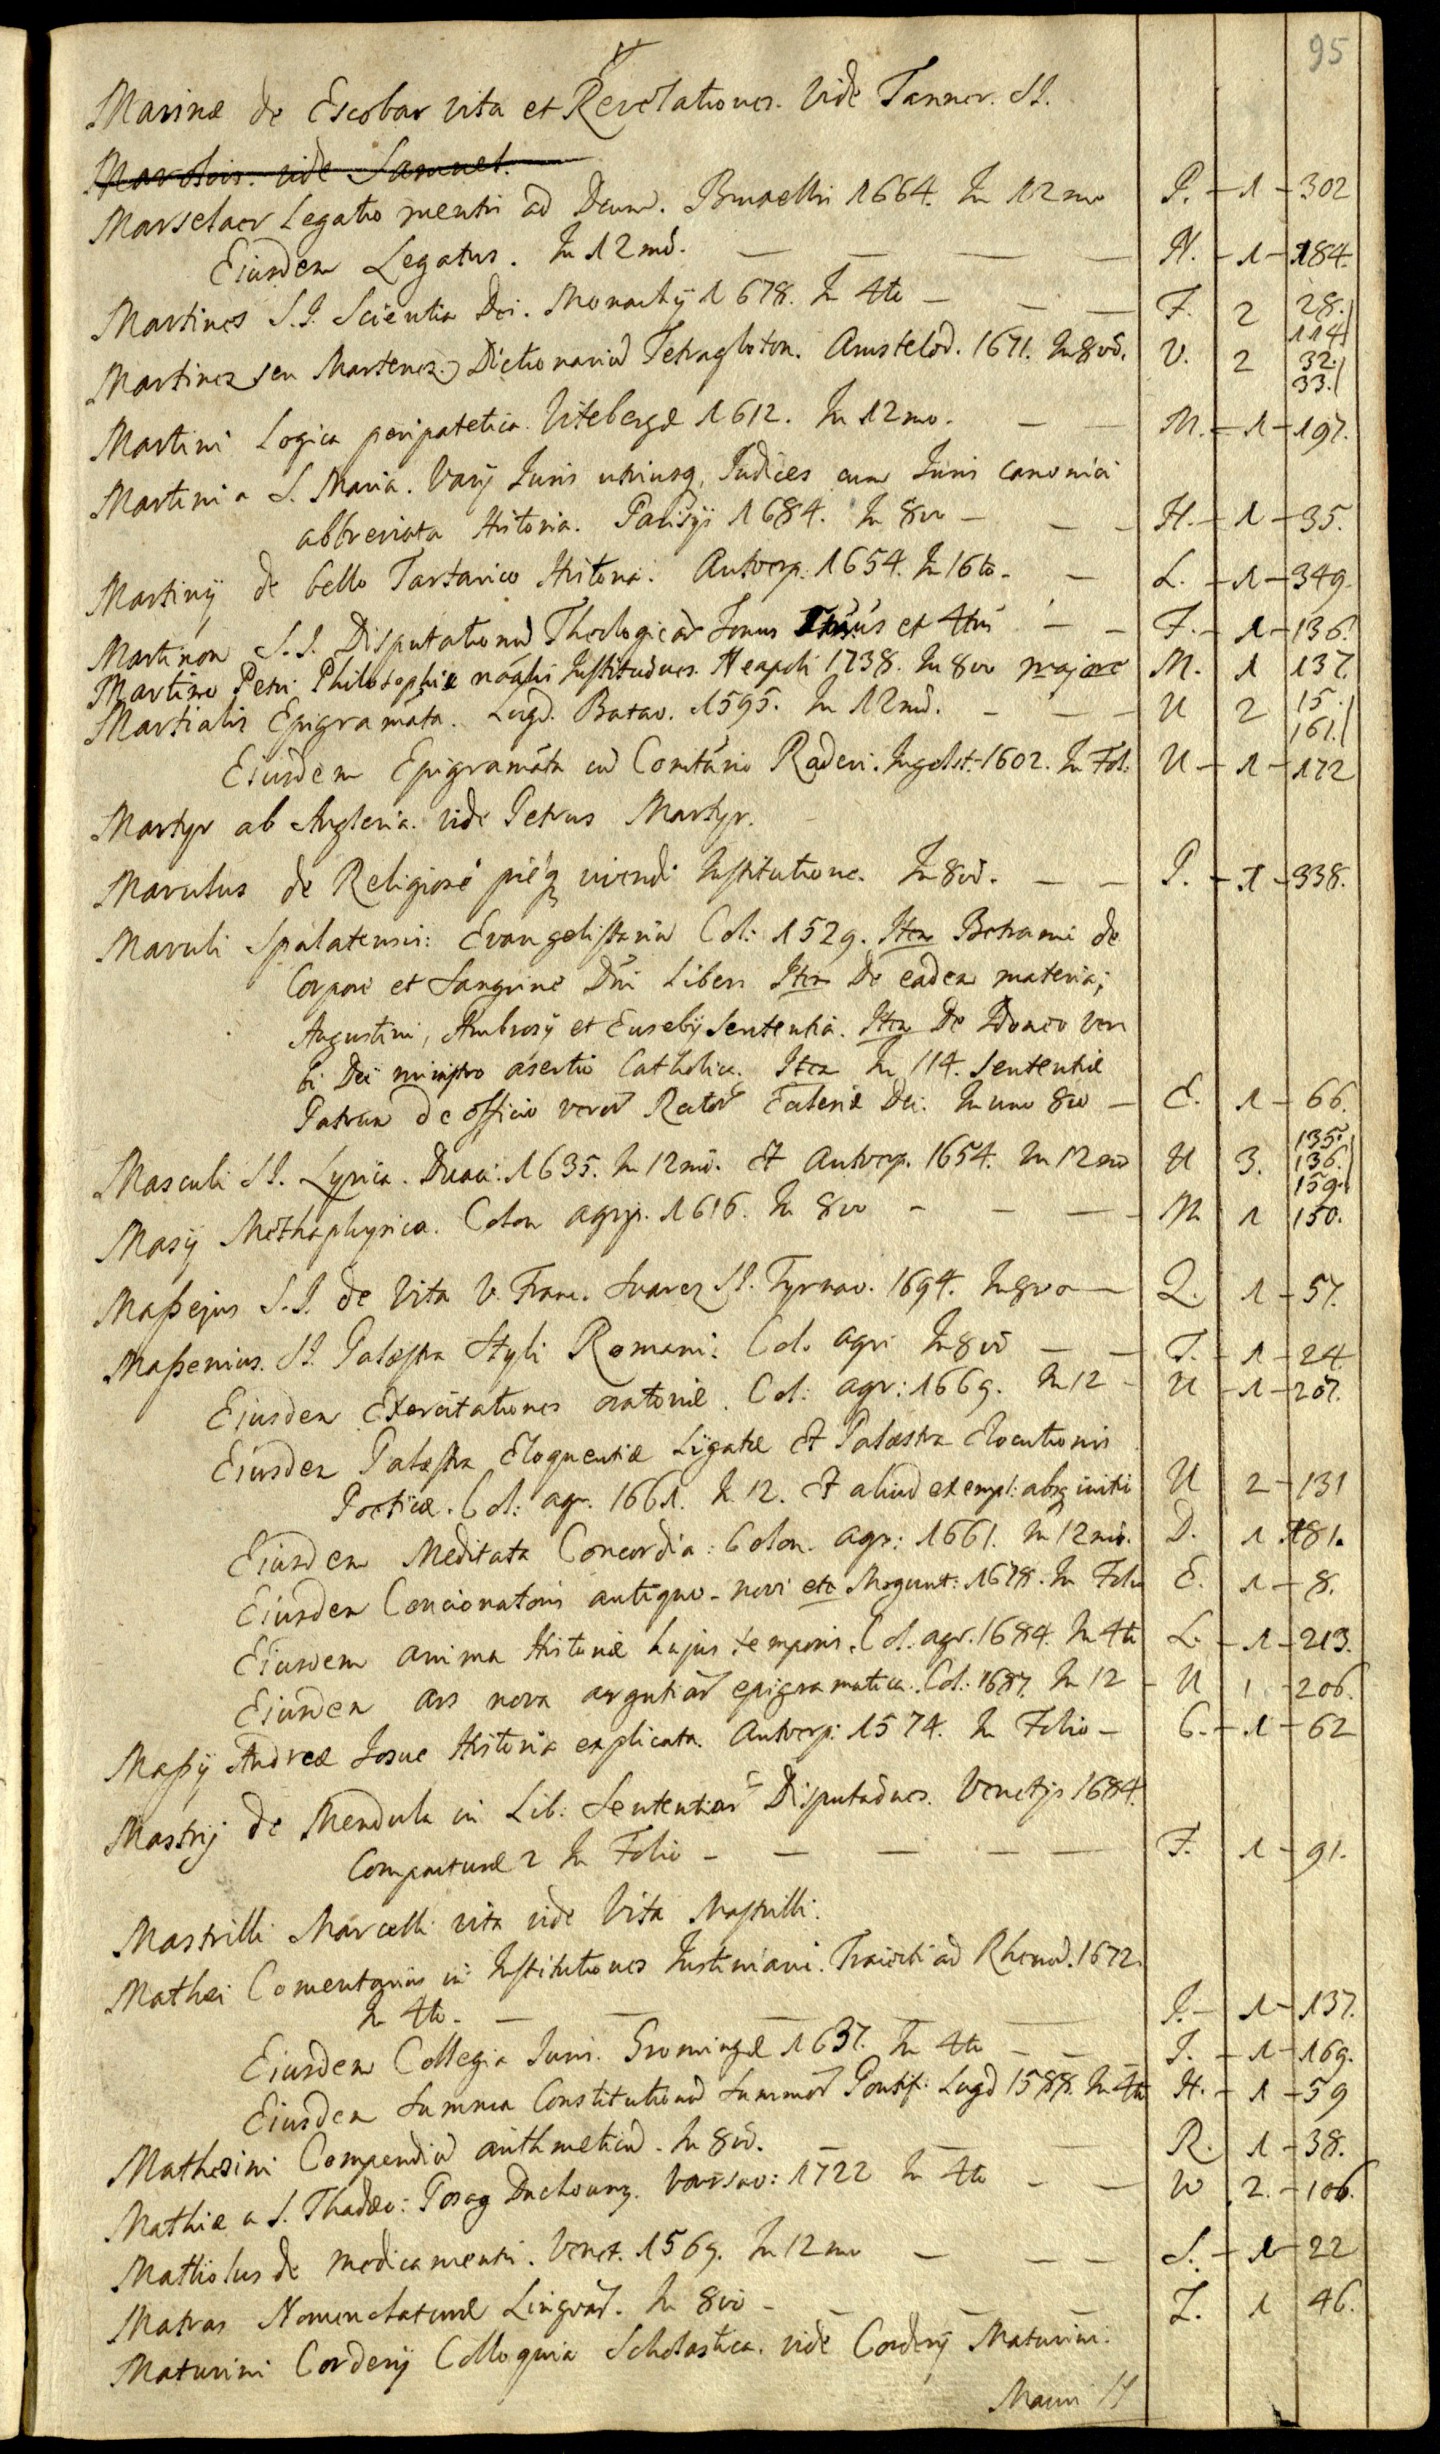 95
Marinæ de Escobar vita et Revelationes. Vide Tanner. SI.
Marolois. vide Samuel.
Marselaer Legatio mentis ad Deum. Bruxellis 1664. In 12mo P. - 1 - 302
Eiusdem Legatus. In 12mo. — — — — N. - 1 - 184.
Martines S.I. Scientia Dei. Monachij 1678. In 4to — — — F. 2 28. 114.
Martinez seu Martenez. Dictionariũ Tetraglotton. Amstelod. 1671. In 8vo. V. 2 32. 33.
Martini Logica peripatetica. Vitebergæ 1612. In 12mo. — — M. - 1 - 197.
Martini a S. Maria. Varij Iuris utriusq, Indices cum Iuris canonici
abbreviata Historia. Parisijs 1684. In 8vo — — — H. - 1 - 35.
Martinij de bello Tartarico Historia. Antverp. 1654. In 16to - — L. - 1 - 349.
Martinon S.I. Disputationũ Theologicar̃ Tomus et 4tus — — F. - 1 - 136.
Martino Petri Philosophiæ nãalis Institũones. Neapoli 1738. In 8vo majore M. 1 137.
Martialis Epigrãmata. Lugd. Batav. 1595. In 12mo. - — — U 2 15. 161.
Eiusdem Epigramãta cũ Comẽtario Raderi. Ingolst. 1602. In Fol. U - 1 - 172
Martyr ab Angleria. vide Petrus Martyr.
Marulus de Religiosè pièq vivendi Institutione. In 8vo. — — P. - 1 - 338.
Maruli Spalatensis: Evangelistariũ Col: 1529. Item Betrami de
Corpore et Sanguine Dñi Liber. Item De eadem materia;
Augustini, Ambrosij et Eusebij Sententia. Item De Idoneo ver
bi Dei ministro asertio Catholica. Item In 114. Sententiæ
Patrum de officio veror̃ Rector̃ Ecclesiæ Dei. In uno 8vo — E. 1 - 66.
Masculi SI. Lyrica. Duaci: 1635. In 12mo. Et Antverp. 1654. In 12mo U 3. 135. 136. 159.
Masij Methaphysica. Colon agrip. 1616. In 8vo - - — - M 1 150.
Maßejus S.I. de Vita V. Franc. Suarez SI. Tyrnav. 1694. In 8vo — Q. 1 - 57.
Maßenius. SI. Palæstra Styli Romani. Col. agri In 8vo — — T. - 1 - 24
Eiusdem Exercitationes oratoriæ. Col: agr: 1669. In 12 - U - 1 - 207.
Eiusdem Palæstra Eloquentiæ Ligatæ Et Palæstra Elocutionis
Poeticæ. Col: agr. 1661. In 12. Et aliud exempl: absq initii U 2 - 131
Eiusdem Meditata Concordia: Colon. agr: 1661. In 12mo. D. 1 181.
Eiusdem Concionatoris antiquo - novi etc Mogunt: 1678. In Folio E. 1 - 8.
Eiusdem anima Historiæ hujus temporis. Col. agr. 1684. In 4to L. - 1 - 213.
Eiusdem ars nova argutiar̃ epigramatica. Col: 1687. In 12 - U 1 - 206.
Maßij Andreæ Josue Historia explicata. Antverp: 1574. In Folio — C. - 1 - 62
Mastrij de Mendula in Lib: Sententiar̃ Disputãones. Venetijs 1684.
Compacturæ 2 In Folio - — — — — F. 1 - 91.
Mastrilli Marcelli vita vide Vita Mastrilli.
Mathæi Comentarius in Institutiones Iustiniani. Traiecti ad Rhenũ. 1672.
In 4to. — — — — — I. - 1 - 137.
Eiusdem Collegia Iuris. Groningæ 1637. In 4to — — I. - 1 - 169.
Eiusdem Summa Constitutionũ Summor̃ Pontif: Lugd 1588. In 4to H. - 1 - 59
Mathesini Compendiũ arithmeticũ. In 8vo. — — — R. 1 - 38.
Mathiæ a S. Thadæo: Posag Duchowny. Varsav: 1722 In 4to - — W 2. - 106.
Mathiolus de medicamentis. Venet. 1569. In 12mo — — — S. - 1 - 22
Matras Nomenclaturæ Linguar̃. In 8vo - — — — Z. 1 46.
Maturini Corderij Colloquia Scholastica. vide Corderij Maturini.
Mauri